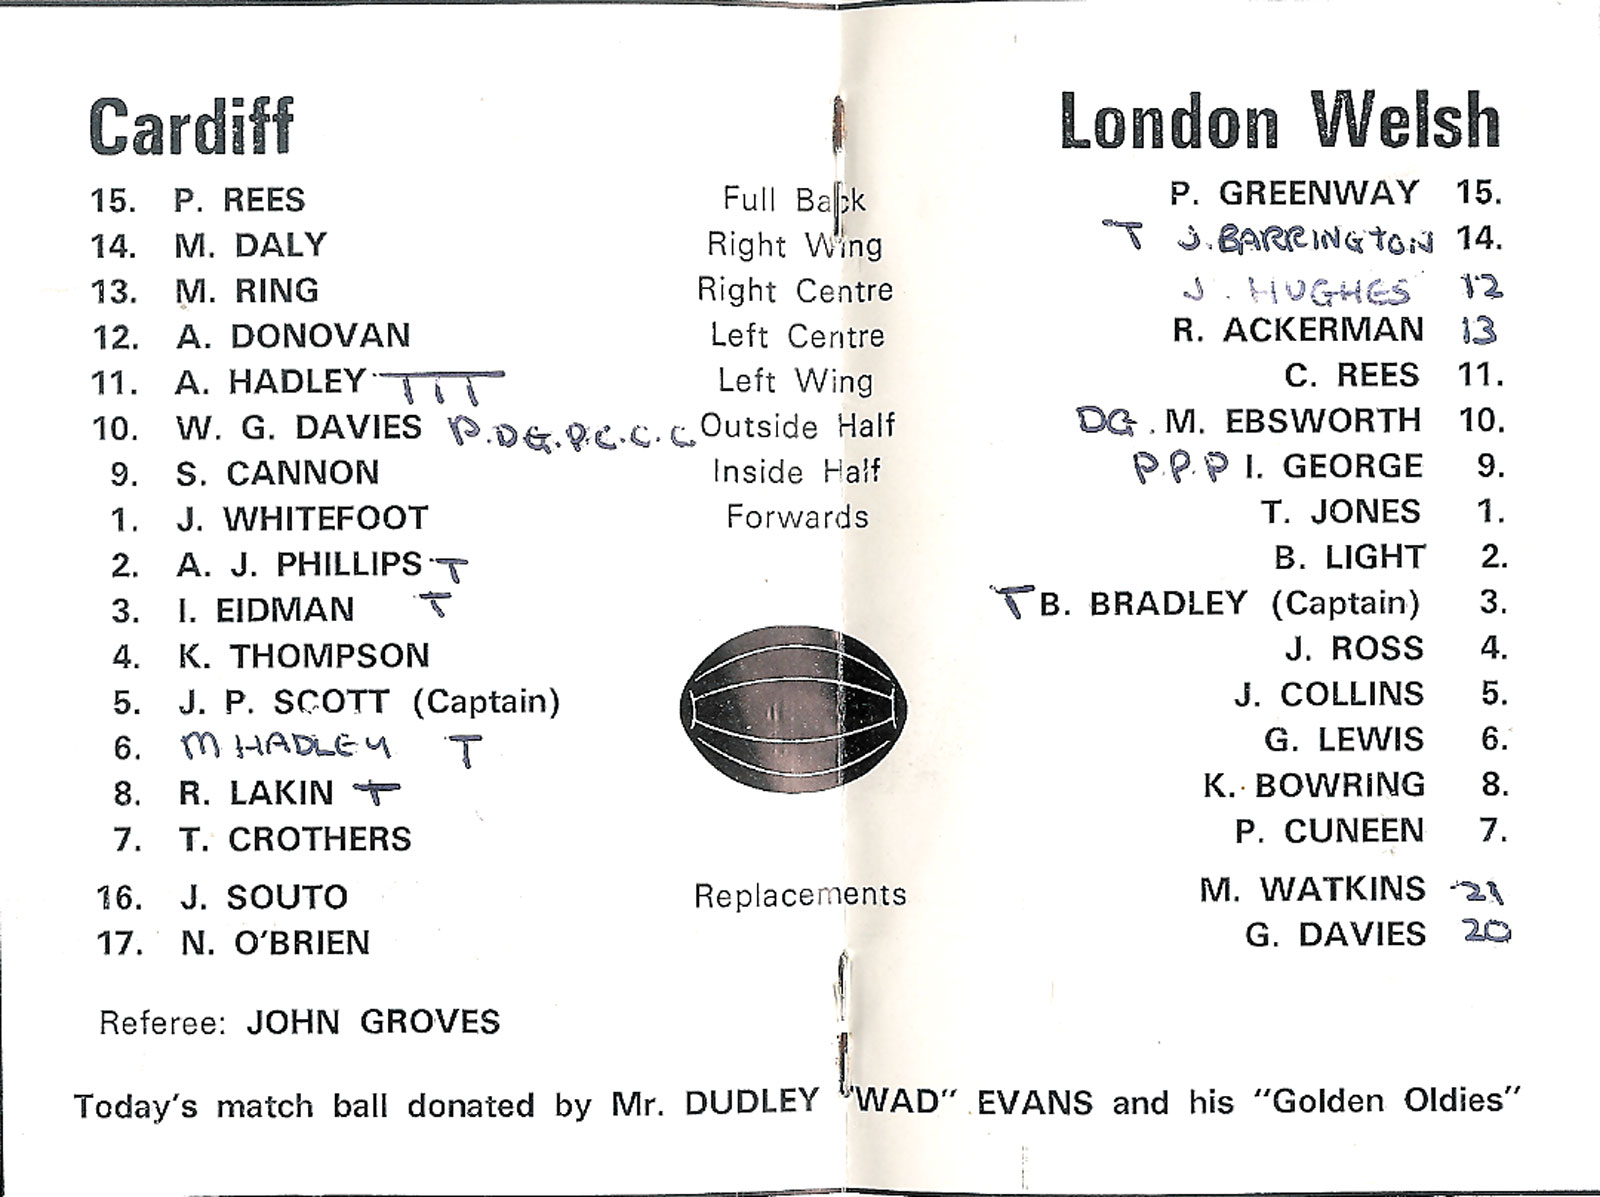 Cardiff London Welsh
15. P. REES Full Back P. GREENWAY 15.
14. M. DALY Right Wing T J. BARRINGTON 14.
13. M. RING Right Centre J. HUGHES 12
12. A. DONOVAN Left Centre R. ACKERMAN 13
11. A. HADLEY T T T Left Wing C. REES 11.
10. W. G. DAVIES P.DG.P.C.C.C Outside Half DG. M. EBSWORTH 10.
9. S. CANNON Inside Half P.P.P I. GEORGE 9.
1. J. WHITEFOOT Forwards T. JONES 1.
2. A. J. PHILLIPS T B. LIGHT 2.
3. I. EIDMAN T T B. BRADLEY (Captain) 3.
4. K. THOMPSON J. ROSS 4.
5. J. P. SCOTT (Captain) J. COLLINS 5.
6. M HADLEY T G. LEWIS 6.
8. R. LAKIN T K. BOWRING 8.
7. T. CROTHERS P. CUNEEN 7.
16. J. SOUTO Replacements M. WATKINS 21
17. N. O'BRIEN G. DAVIES 20
Referee: JOHN GROVES
Today's match ball donated by Mr. DUDLEY "WAD" EVANS and his "Golden Oldies"